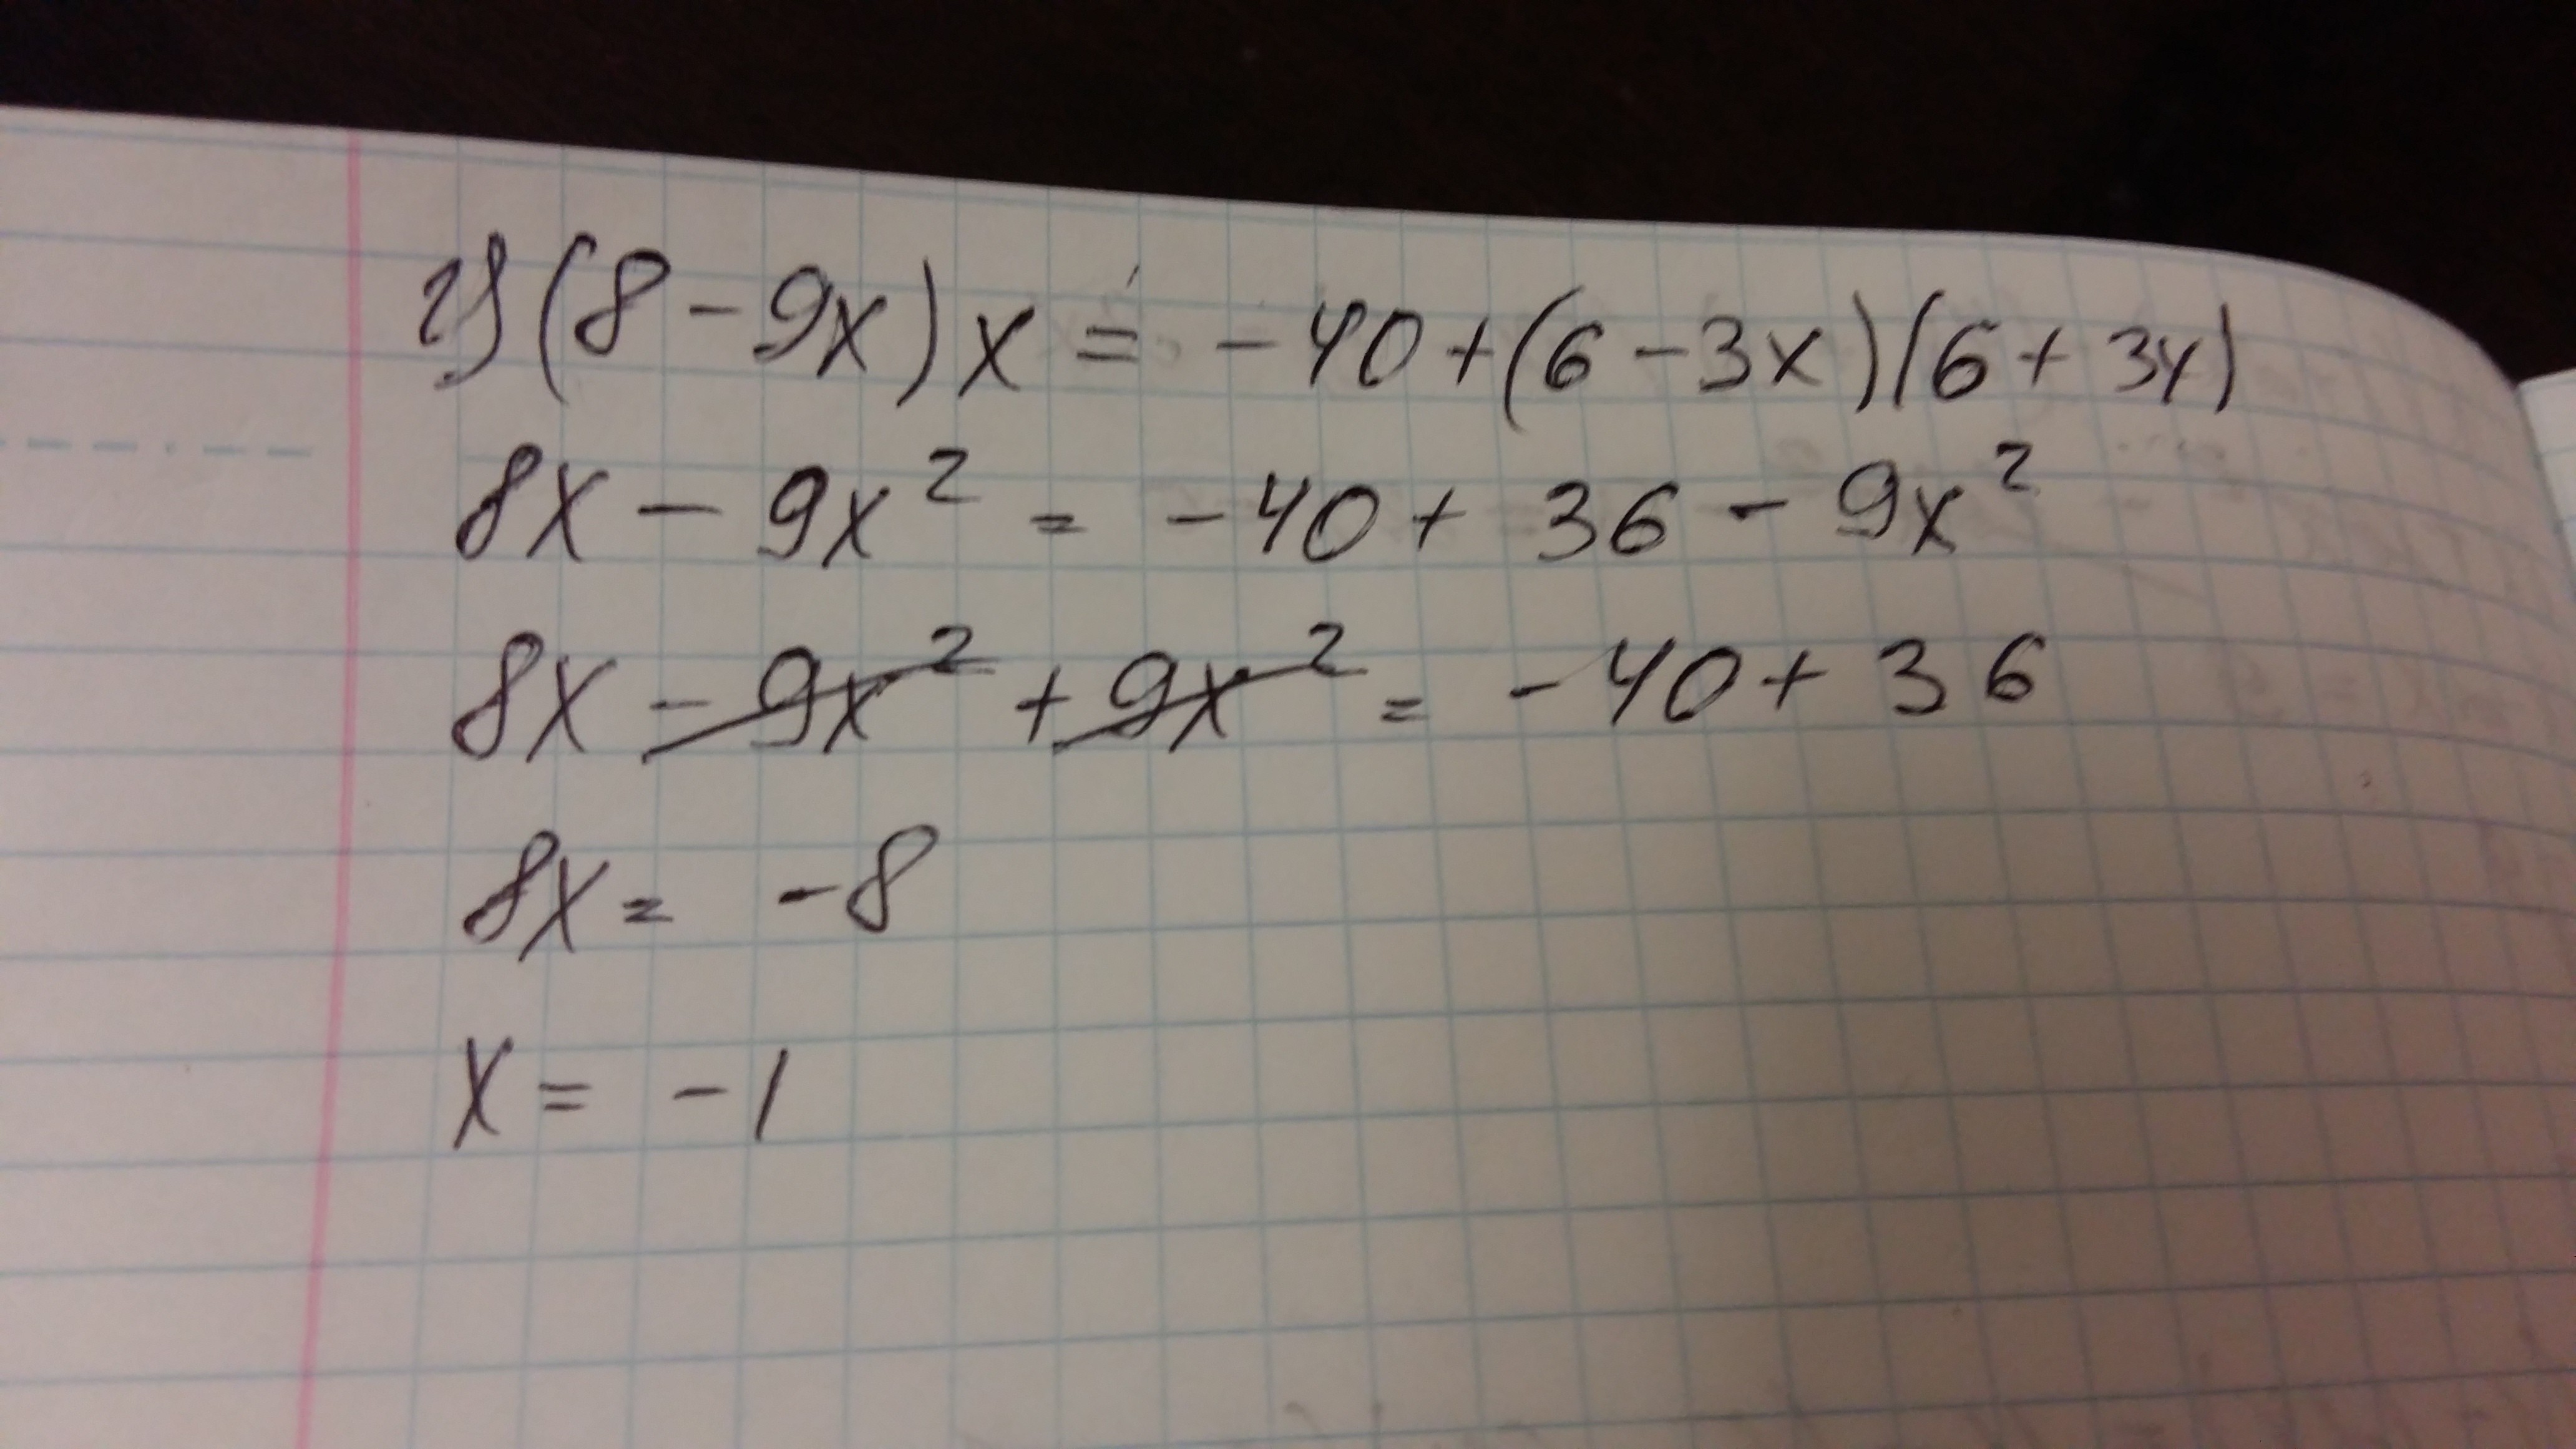 г) (8 - 9x) x = - 40 + (6 - 3x)(6 + 3x)
8x - 9x² = - 40 + 36 - 9x²
8x - 9x² + 9x² = - 40 + 36
8x = - 8
x = - 1